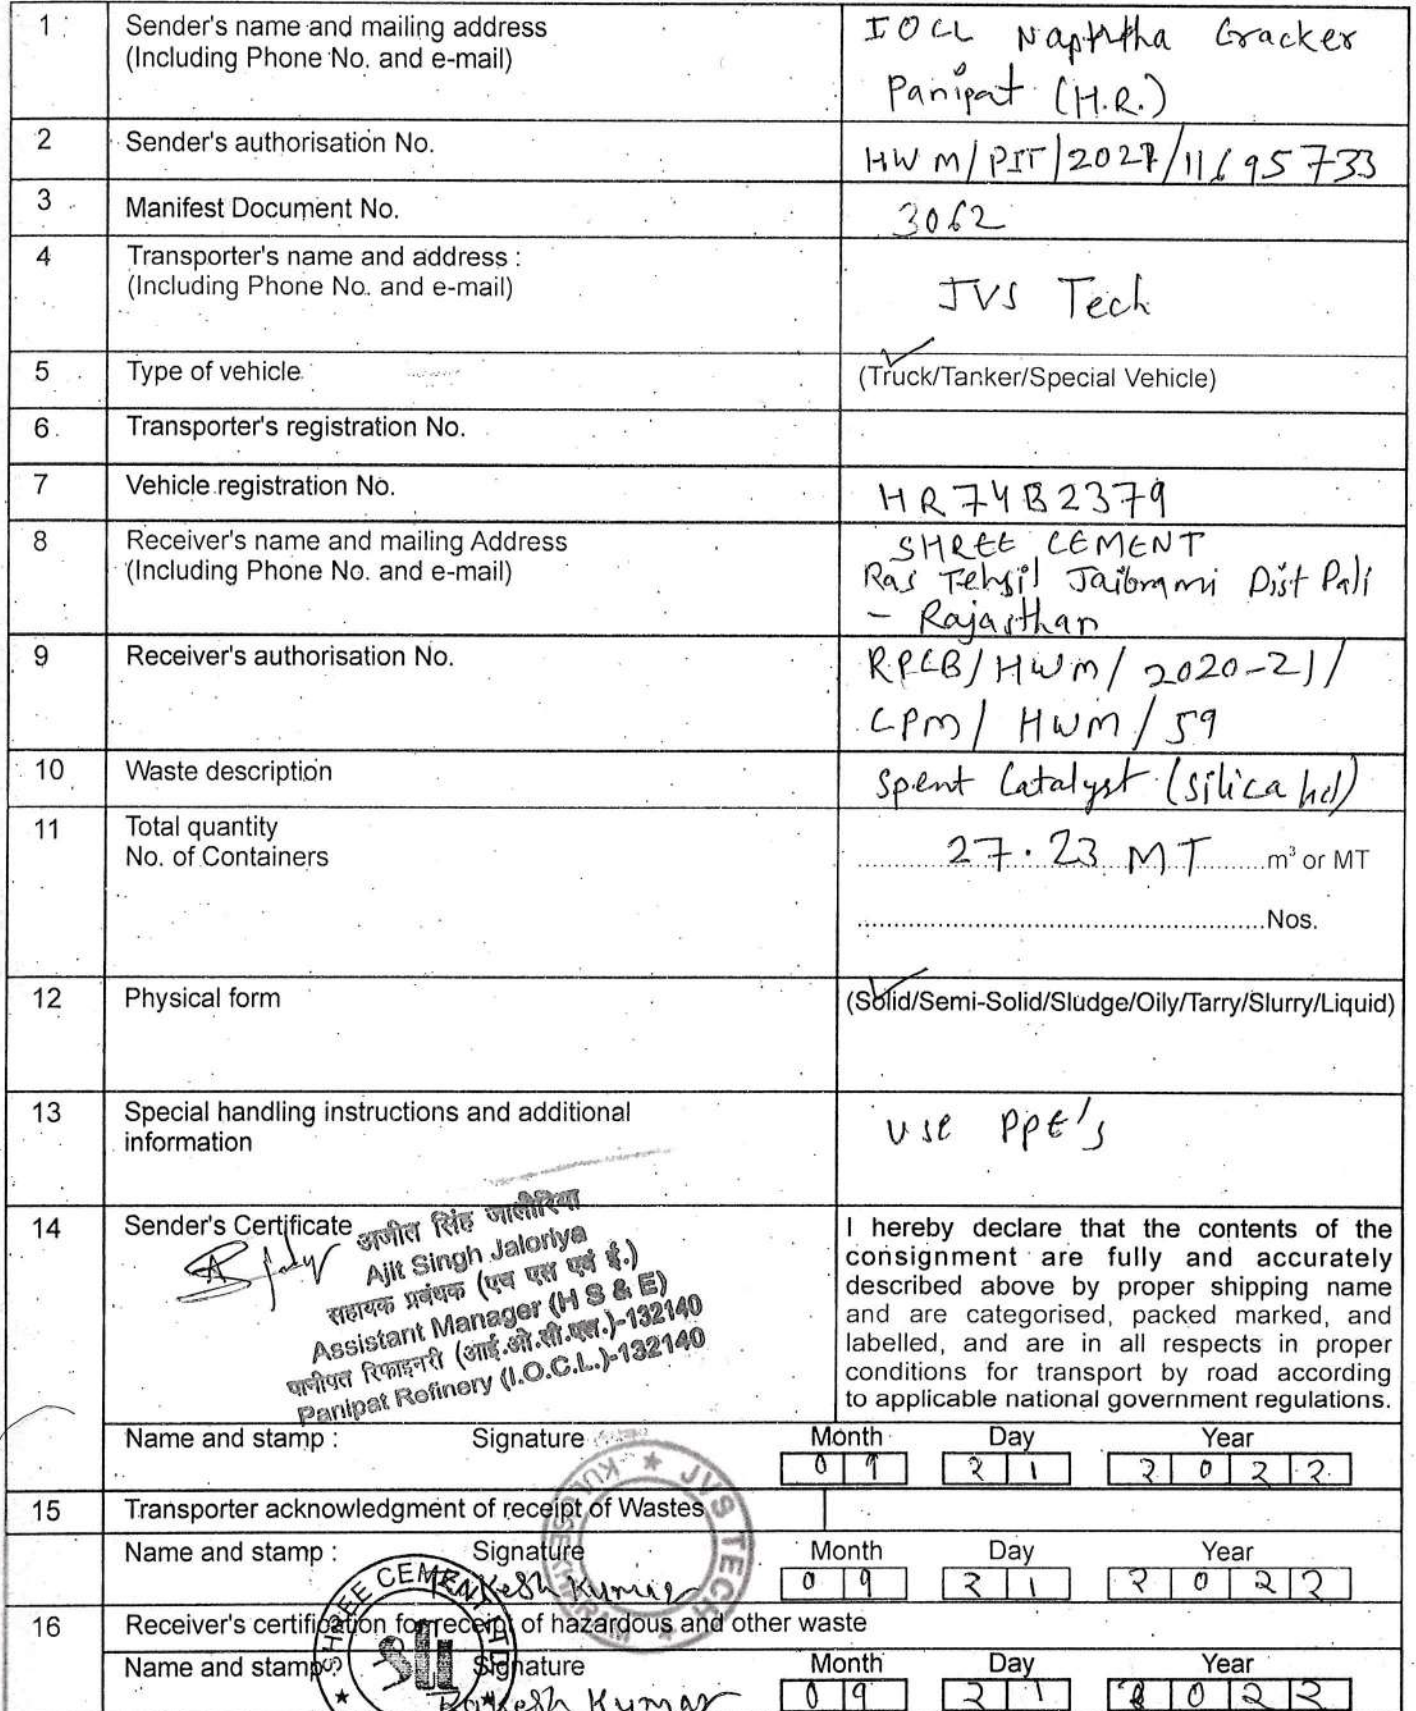 1 Sender's name and mailing address
(Including Phone No. and e-mail)
IOCL Naphtha Cracker
Panipat (H.R.)
2 Sender's authorisation No.
HWM/PIT/2027/11695733
3 Manifest Document No.
3062
4 Transporter's name and address :
(Including Phone No. and e-mail)
JVS Tech
5 Type of vehicle
(Truck/Tanker/Special Vehicle)
6. Transporter's registration No.
7 Vehicle registration No.
HR74B2379
8 Receiver's name and mailing Address
(Including Phone No. and e-mail)
SHREE CEMENT
Ras Tehsil Dist Pali
- Rajasthan
9 Receiver's authorisation No.
RPCB/HWM/2020-21/
CPM/HWM/59
10 Waste description
Spent Catalyst (Silica
11 Total quantity
No. of Containers
27.23 MT m³ or MT
Nos.
12 Physical form
(Solid/Semi-Solid/Sludge/Oily/Tarry/Slurry/Liquid)
13 Special handling instructions and additional
information
Use PPE's
14 Sender's Certificate
अजीत सिंह जालोरिया
Ajit Singh Jaloriya
सहायक प्रबंधक (एच एस एवं ई.)
Assistant Manager (H S & E)
पानीपत रिफाइनरी (आई.ओ.सी.एल.)-132140
Panipat Refinery (I.O.C.L.)-132140
I hereby declare that the contents of the
consignment are fully and accurately
described above by proper shipping name
and are categorised, packed marked, and
labelled, and are in all respects in proper
conditions for transport by road according
to applicable national government regulations.
Name and stamp : Signature Month Day Year
09 21 2022
15 Transporter acknowledgment of receipt of Wastes
JVS TECH
Name and stamp : Signature Month Day Year
Rakesh Kumar 09 21 2022
16 Receiver's certification for receipt of hazardous and other waste
SHREE CEMENT LTD
Name and stamp Signature Month Day Year
Rakesh Kumar 09 21 2022